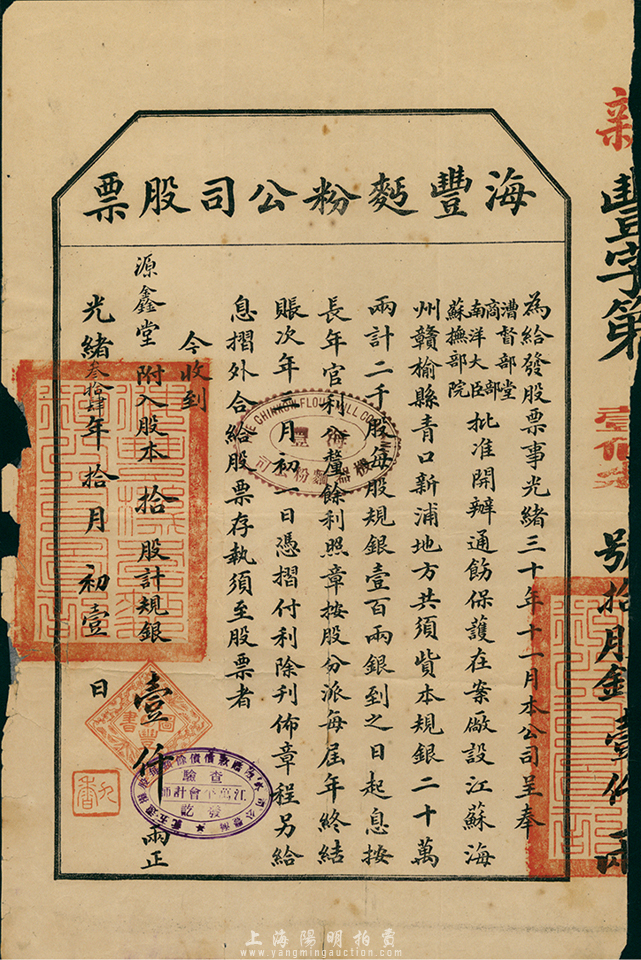 海豐麪粉公司股票
為給發股票事光緒三十年十一月本公司呈奉
漕督部堂
商部
南洋大臣
蘇撫部院
批准開辦通飭保護在案廠設江蘇海
州贛榆縣青口新浦地方共須貲本規銀二十萬
兩計二千股每股規銀壹百兩銀到之日起息按
長年官利八釐餘利照章按股分派每屆年終結
賬次年三月初一日憑摺付利除刋佈章程另給
息摺外合給股票存執須至股票者
今收到
源鑫堂 附入股本拾股計規銀
壹仟兩正
光緒叁拾肆年拾月初壹日
新
豐字第
號拾月金壹仟兩
THE CHINKOW FLOUR MILL CO
海豐
機器麵粉公司
查驗
江萬平會計師
發訖
上海陽明拍賣
www.yangmingauction.com